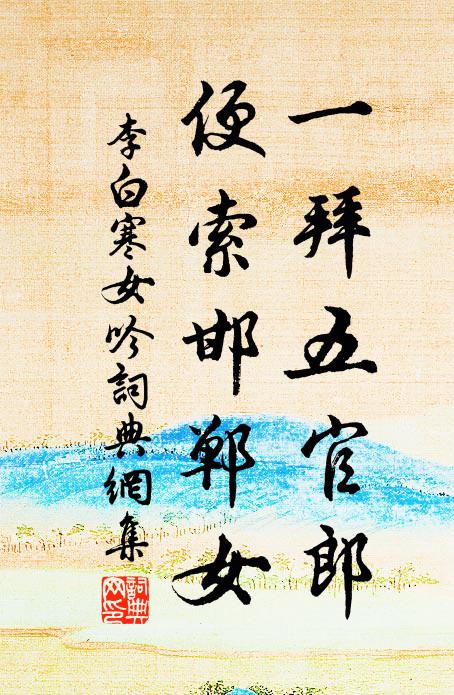 一拜五官郎
便索邯鄲女
李白寒女吟詞典網集
詞典網印